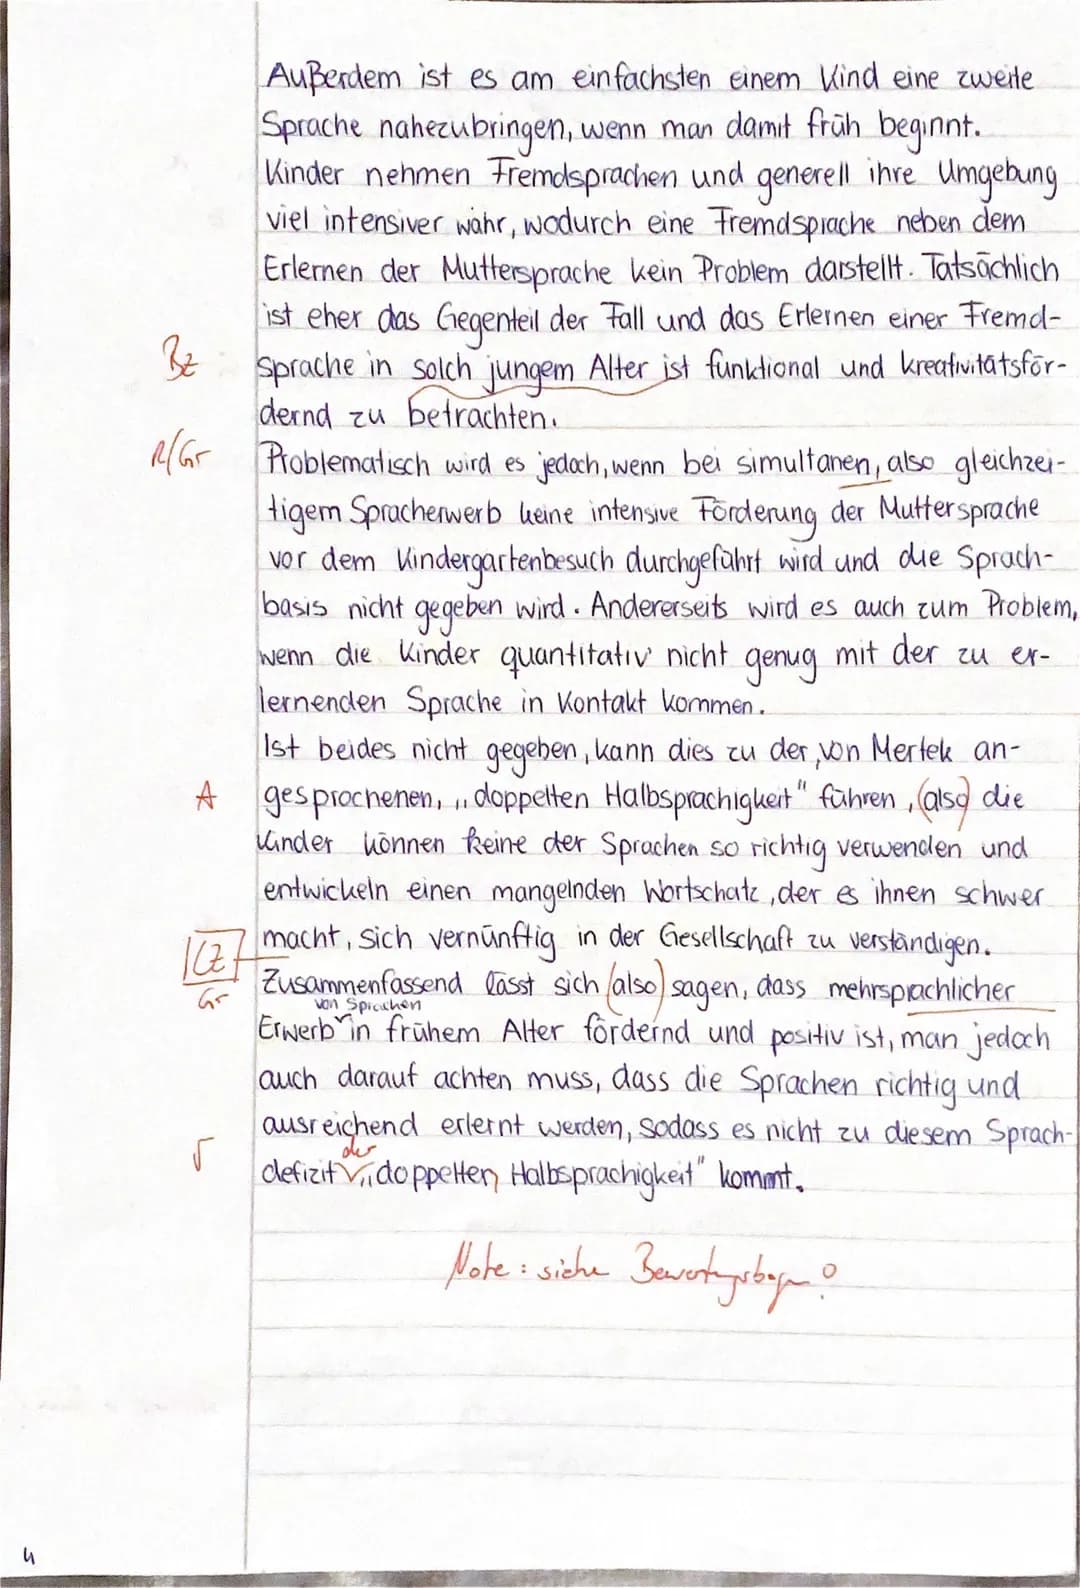 Außerdem ist es am einfachsten einem Kind eine zweite
Sprache nahezubringen, wenn man damit früh beginnt.
Kinder nehmen Fremdsprachen und generell ihre Umgebung
viel intensiver wahr, wodurch eine Fremdsprache neben dem
Erlernen der Muttersprache kein Problem darstellt. Tatsächlich
ist eher das Gegenteil der Fall und das Erlernen einer Fremd-
Bz sprache in solch jungem Alter ist funktional und kreativitätsför-
dernd zu betrachten.
R/Gr Problematisch wird es jedoch, wenn bei simultanen, also gleichzei-
tigem Spracherwerb keine intensive Förderung der Muttersprache
vor dem Kindergartenbesuch durchgeführt wird und die Sprach-
basis nicht gegeben wird. Andererseits wird es auch zum Problem,
wenn die Kinder quantitativ nicht genug mit der zu er-
lernenden Sprache in Kontakt kommen.
Ist beides nicht gegeben, kann dies zu der, von Mertek an-
A gesprochenen, „doppelten Halbsprachigkeit" führen, (also) die
Kinder können keine der Sprachen so richtig verwenden und
entwickeln einen mangelnden Wortschatz, der es ihnen schwer
macht, sich vernünftig in der Gesellschaft zu verständigen.
Gr Zusammenfassend lässt sich (also) sagen, dass mehrsprachlicher
von Sprachen
Erwerb in frühem Alter fördernd und positiv ist, man jedoch
auch darauf achten muss, dass die Sprachen richtig und
ausreichend erlernt werden, sodass es nicht zu diesem Sprach-
der
√ defizit „doppelten Halbsprachigkeit" kommt.
Note: siehe Bewertungsbogen!
4